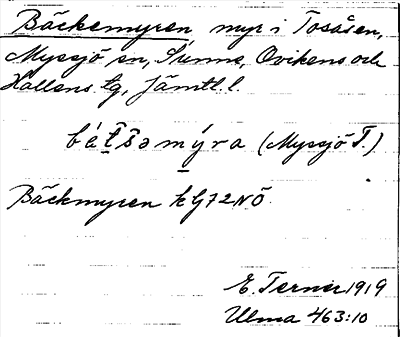 Bäckemyren myr i Tosåsen,
Myssjö sn, Sunne, Ovikens och
Hallens tg, Jämtl. l.
bét̠s̑əmýra (Myssjö T.)
Bäckmyren k G72NÖ
E. Terner 1919
Ulma 463:10